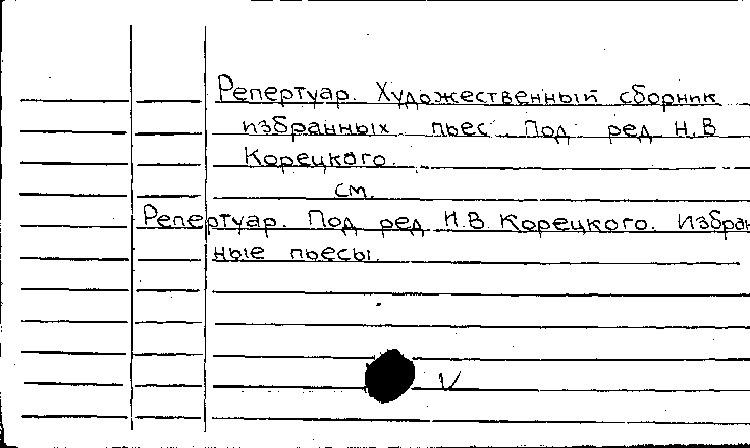 Репертуар. Художественный сборник
избранных пьес. Под ред Н.В
Корецкого.
см.
Репертуар. Под ред Н.В Корецкого. Избран
ные пьесы.